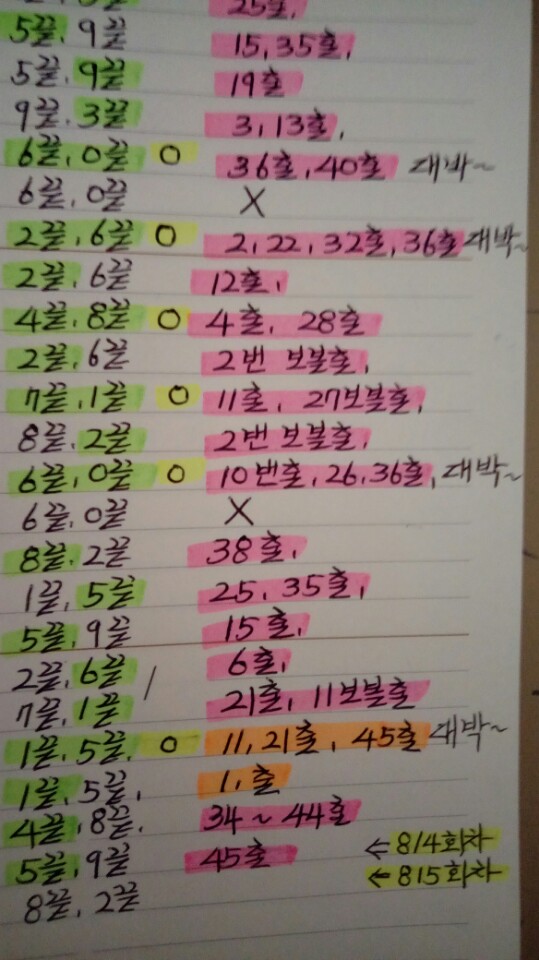 25출,
5끝, 9끝 15, 35출,
5끝, 9끝 19출
9끝, 3끝 3, 13출,
6끝, 0끝 O 36출, 40출 대박~
6끝, 0끝 X
2끝, 6끝 O 2, 22, 32출, 36출 대박~
2끝, 6끝 12출,
4끝, 8끝 O 4출, 28출
2끝, 6끝 2번 보볼출,
7끝, 1끝 O 11출, 27보볼출,
8끝, 2끝 2번 보볼출,
6끝, 0끝 O 10번출, 26, 36출, 대박~
6끝, 0끝 X
8끝, 2끝 38출,
1끝, 5끝 25, 35출,
5끝, 9끝 15출,
2끝, 6끝 / 6출,
7끝, 1끝 21출, 11보볼출
1끝, 5끝, O 11, 21출, 45출 대박~
1끝, 5끝, 1, 출
4끝, 8끝, 34 ~ 44출
5끝, 9끝 45출 ← 814회차
8끝, 2끝 ← 815회차